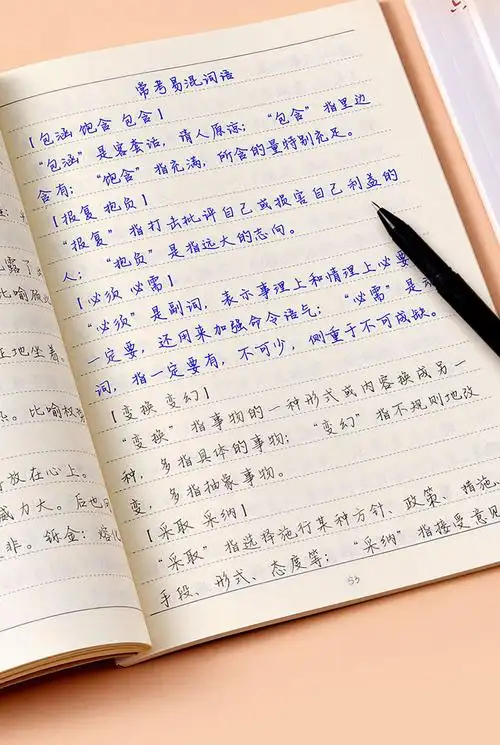 常考易混词语
【包涵 饱含 包含】
“包涵”是客套话，请人原谅；“包含”指里边
含有；“饱含”指充满，所含的量特别充足。
【报复 抱负】
“报复”指打击批评自己或损害自己利益的
人；“抱负”是指远大的志向。
【必须 必需】
“必须”是副词，表示事理上和情理上必要
一定要，还用来加强命令语气；“必需”是动
词，指一定要有，不可少，侧重于不可或缺。
【变换 变幻】
“变换”指事物的一种形式或内容换成另一
种，多指具体的事物；“变幻”指不规则地改
变，多指抽象事物。
【采取 采纳】
“采取”指选择施行某种方针、政策、措施、
手段、形式、态度等；“采纳”指接受意见
53
露了
比喻
正地坐着。
比喻权势
放在心上。
威力大。后也
非。铄金：熔化